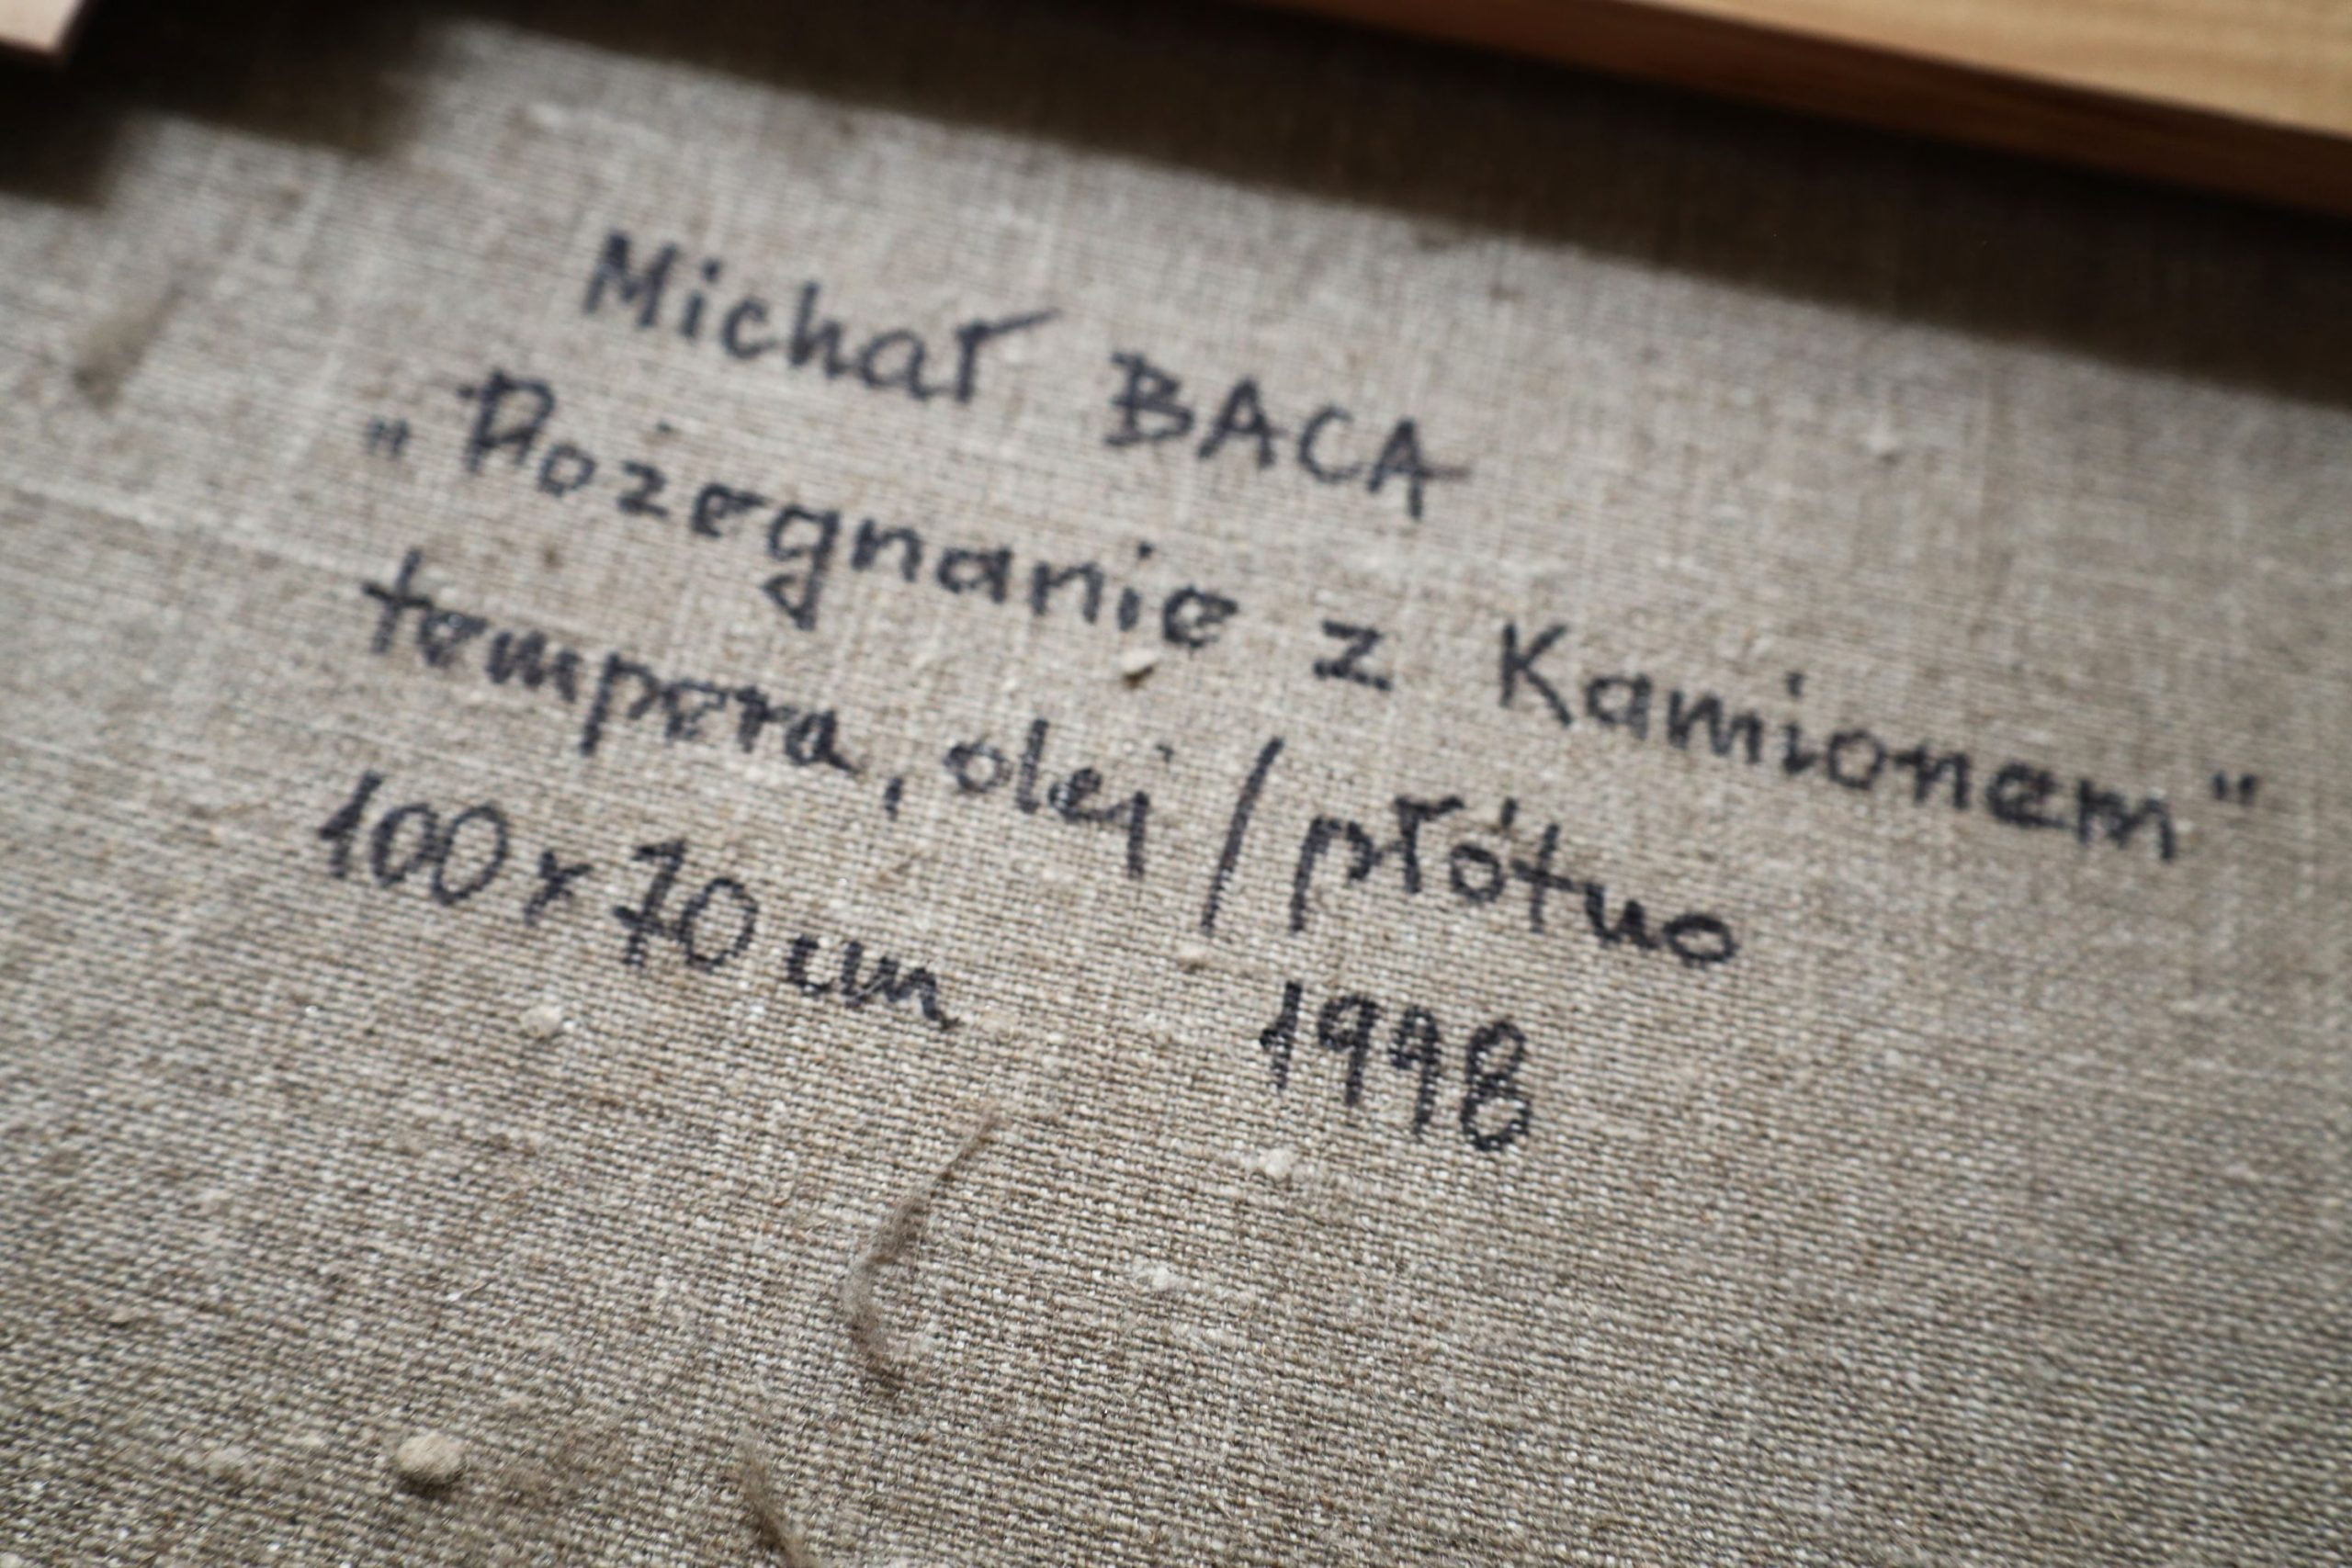 Michał BACA
"Pożegnanie z Kamionem"
tempera, olej / płótno
100 x 70 cm 1998